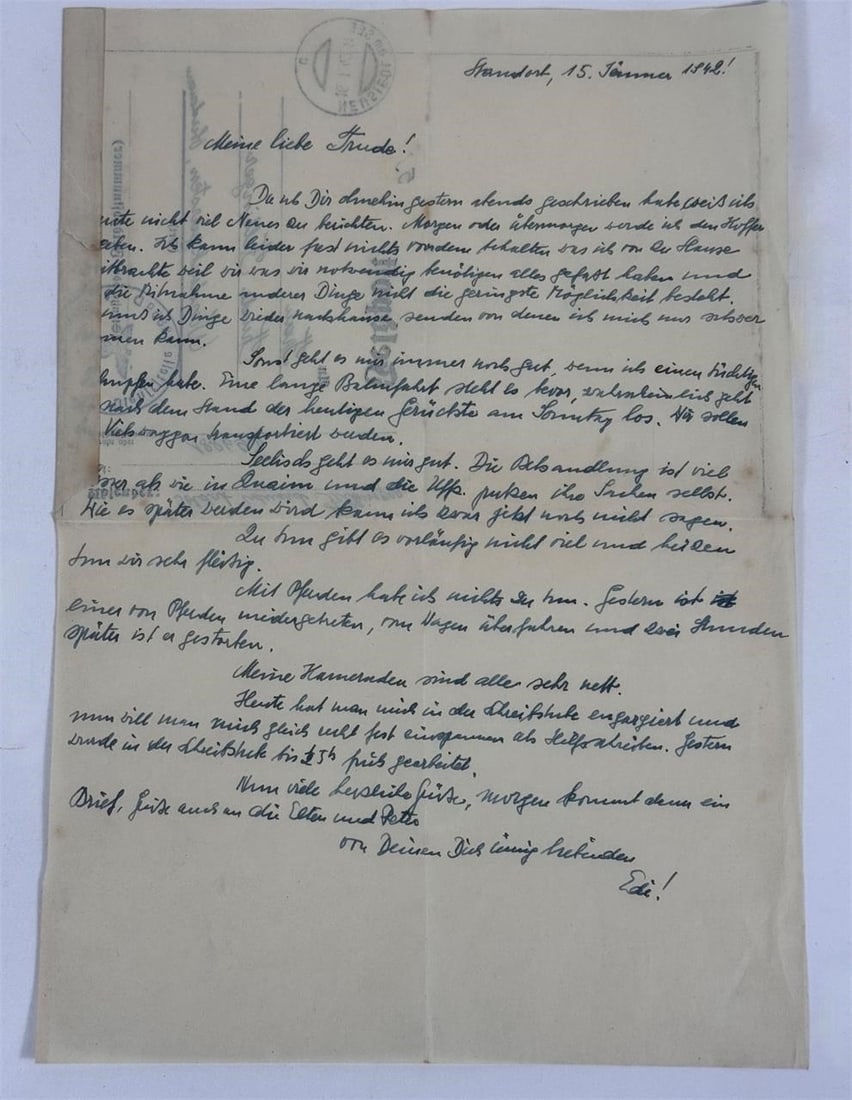 Standort, 15. Jänner 1942!
Meine liebe Trude!
Da ich Dir ohnehin gestern abends geschrieben habe, weiß ich
nicht viel Neues zu berichten. Morgen oder übermorgen werde ich den Koffer
eben. Ich kann leider fast nichts von dem behalten was ich von zu Hause
weil wir was wir notwendig benötigen alles gefaßt haben und
die Mitnahme anderer Dinge nicht die geringste Möglichkeit besteht.
muß ich Dinge wieder nachhause senden von denen ich mich nur schwer
nen kann.
Sonst geht es mir immer noch gut, wenn ich einen tüchtigen
habe. Eine lange Bahnfahrt steht es bevor, wahrscheinlich geht
nach dem Stand der heutigen Gerüchte am Sonntag los. Wir sollen
Viehwaggon transportiert werden.
Seelisch geht es mir gut. Die Behandlung ist viel
sser als wie in Znaim und die Uffz. putzen ihre Sachen selbst.
Wie es später werden wird kann ich zwar jetzt noch nicht sagen.
Zu tun gibt es vorläufig nicht viel und heizen
tun wir sehr fleißig.
Mit Pferden habe ich nichts zu tun. Gestern ist
einer von Pferden niedergetreten, vom Wagen überfahren und zwei Stunden
später ist er gestorben.
Meine Kameraden sind alle sehr nett.
Heute hat man mich in der Schreibstube engagiert und
nun will man mich gleich recht fest einspannen als Hilfsschreiber. Gestern
wurde in der Schreibstube bis 5h früh gearbeitet.
Nun viele herzliche Grüße, morgen kommt dann ein
Brief, Grüße auch an die Eltern und
von Deinen Dich innig liebenden
Edi!